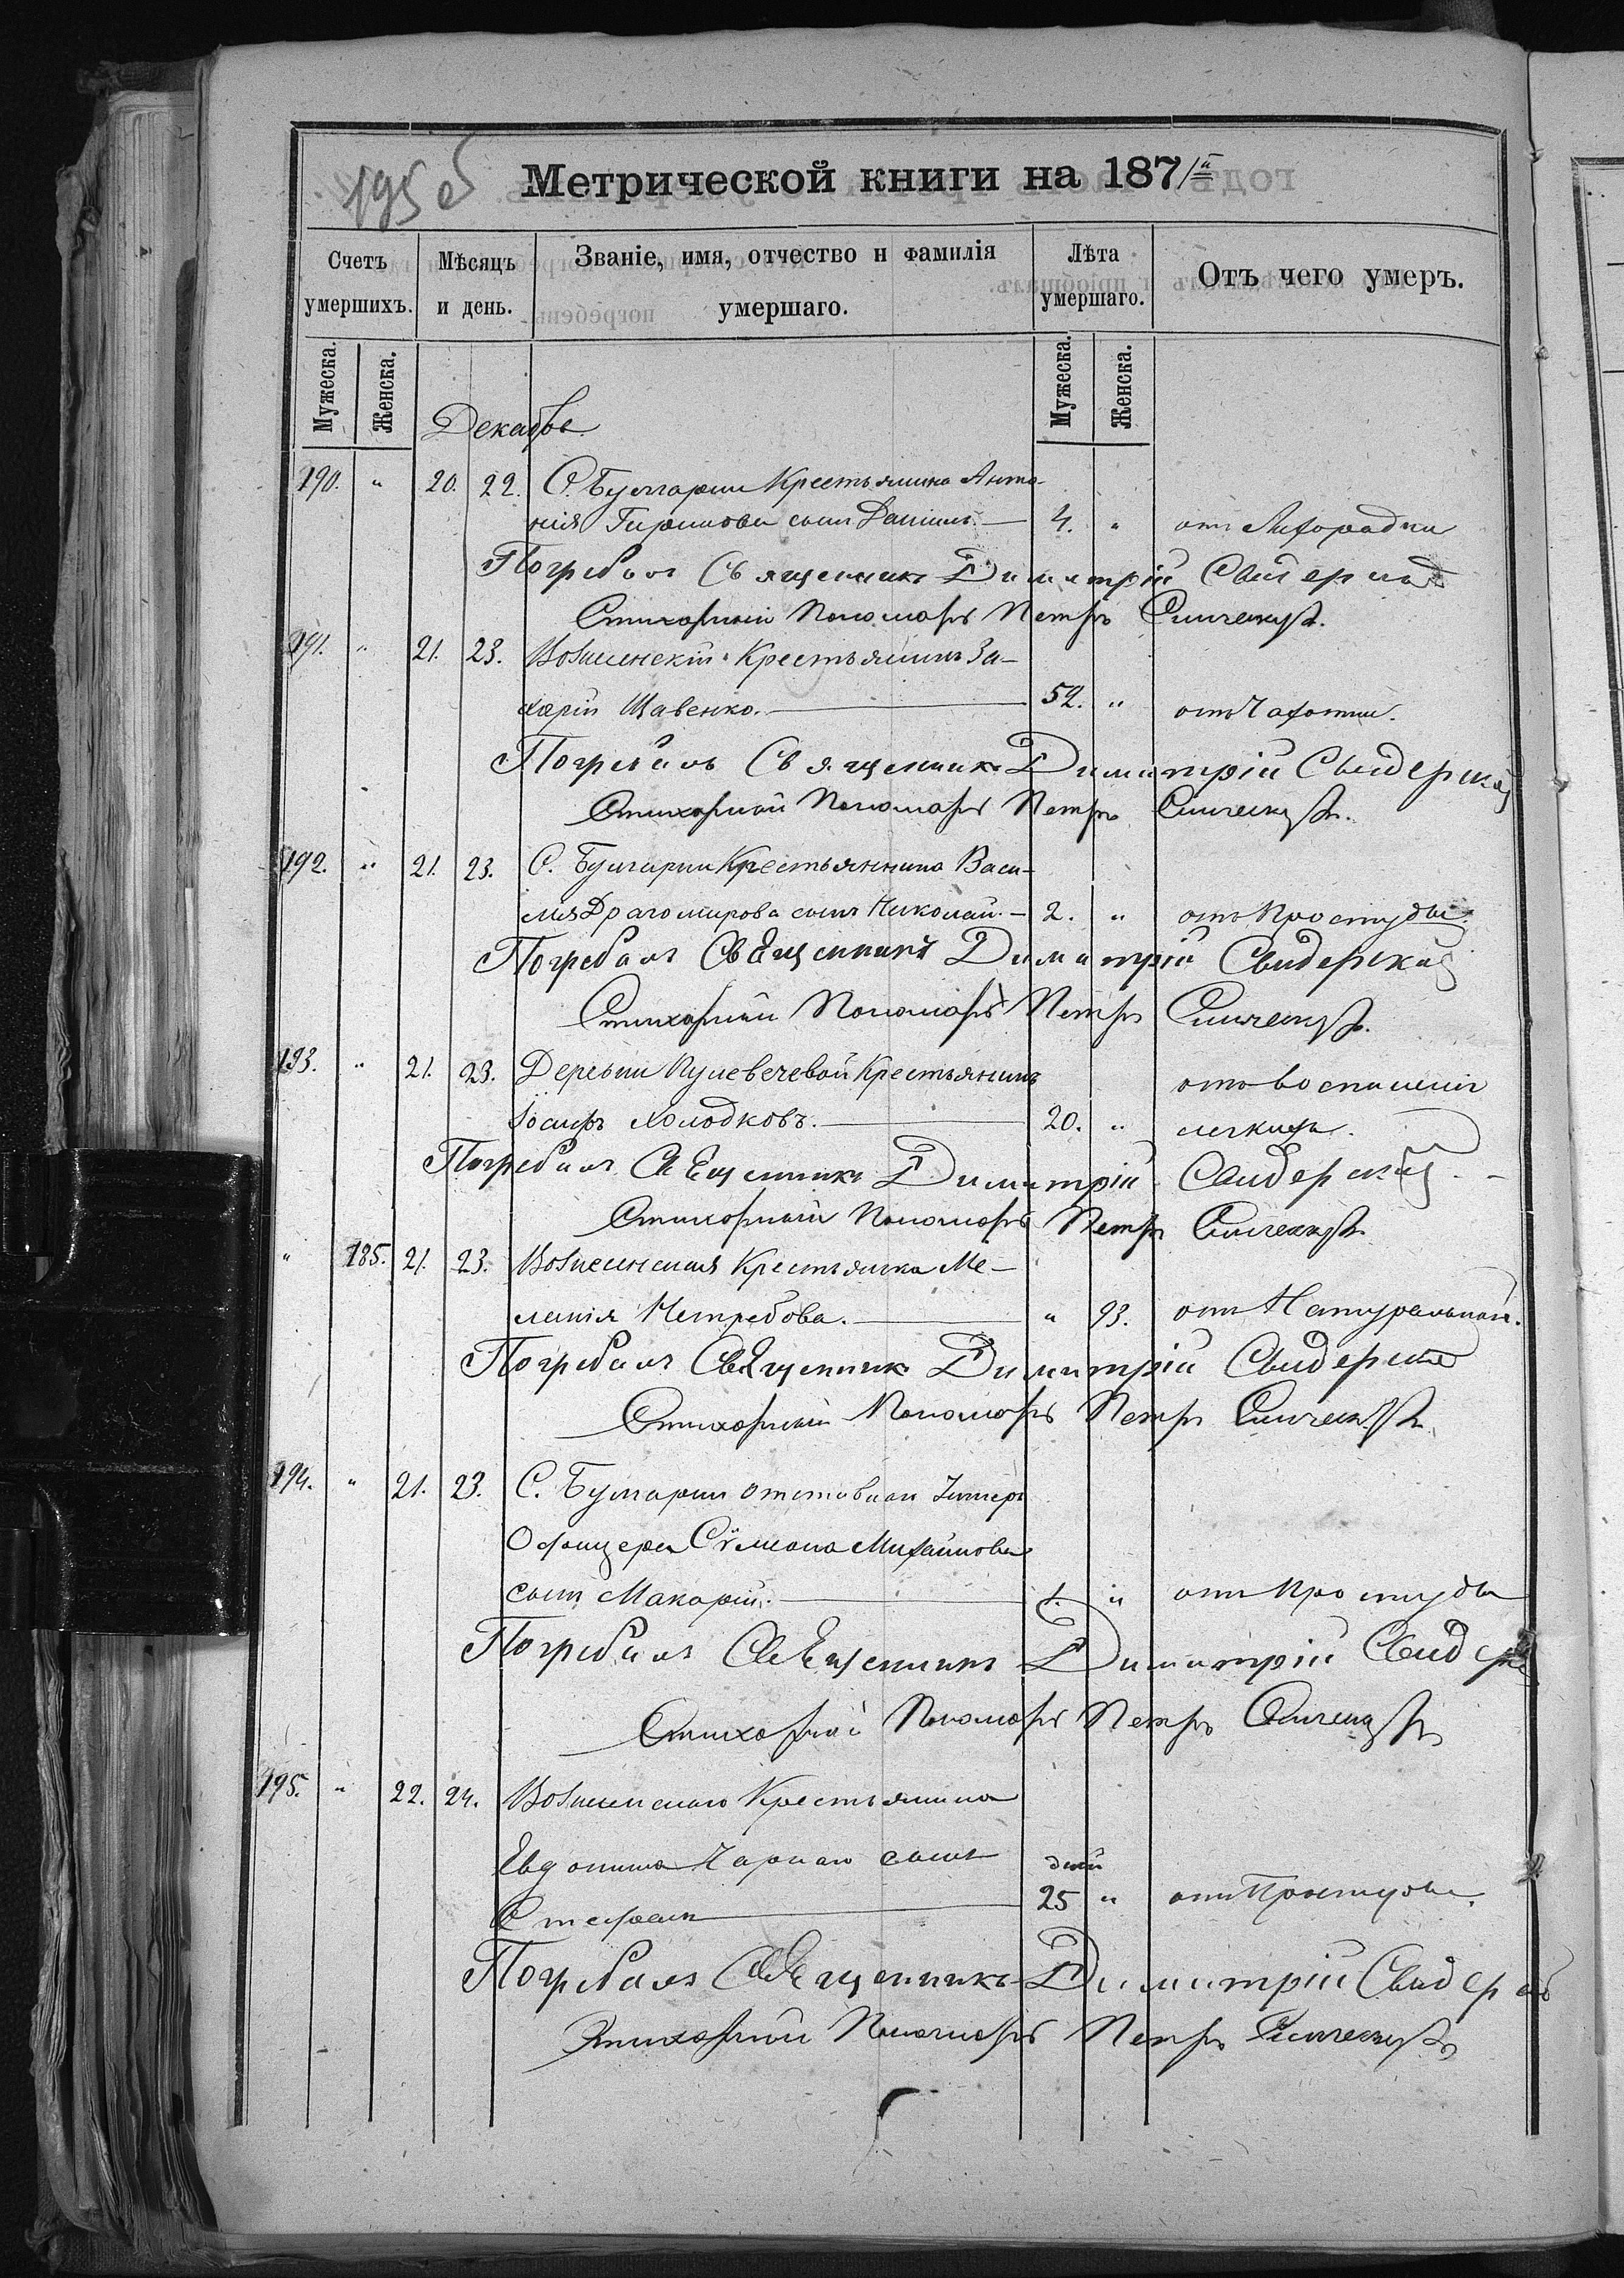 195 об
Метрической книги на 187/1й
Счетъ умершихъ.
Мѣсяцъ и день.
Званіе, имя, отчество и фамилія умершаго.
Лѣта умершаго.
Отъ чего умеръ.
Мужеска. Женска. Мужеска. Женска.
Декабрь
190. " 20. 22. С. Булгарии Крестьянина Анто-
нія сынъ Даніилъ. — 4. " отъ Лихорадки
Погребалъ Священникъ Димитрій Свидерскій
Стихарный Пономарь Петръ
191. " 21. 23. Вознесенскій Крестьянинъ За-
харій Щавенко. — 52. " отъ Чахотки.
Погребалъ Священникъ Димитрій Свидерскій
Стихарный Пономарь Петръ
192. " 21. 23. С. Булгарии Крестьянина Васи-
лія Драгомирова сынъ Николай. — 2. " отъ Простуды.
Погребалъ Священникъ Димитрій Свидерскій
Стихарный Пономарь Петръ
193. " 21. 23. Деревни Крестьянинъ отъ воспаленія
Іосифъ Холодковъ. — 20. " легкихъ.
Погребалъ Священникъ Димитрій Свидерскій
Стихарный Пономарь Петръ
" 185. 21. 23. Вознесенская Крестьянка Ме-
ланія Нетребова. — " 93. отъ Натуральной.
Погребалъ Священникъ Димитрій Свидерскій
Стихарный Пономарь Петръ
194. " 21. 23. С. Булгарии отставнаго Унтеръ
Офицера Сумеона Михайлова
сынъ Макарій. — 1. " отъ Простуды
Погребалъ Священникъ Димитрій Свидерскій
Стихарный Пономарь Петръ
195. " 22. 24. Вознесенскаго Крестьянина
Евдокима сынъ дней
Стефанъ — 25 " отъ Простуды.
Погребалъ Священникъ Димитрій Свидерскій
Стихарный Пономарь Петръ